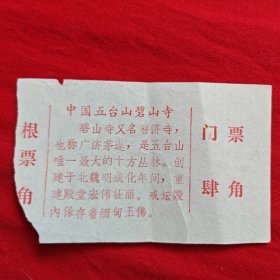 中国五台山碧山寺
碧山寺又名普济寺，
也称广济茅蓬，是五台山
唯一最大的十方丛林。创
建于北魏明成化年间，重
建殿堂宏伟壮丽。戒坛殿
内保存着缅甸玉佛。
根
票
角
门票
肆角